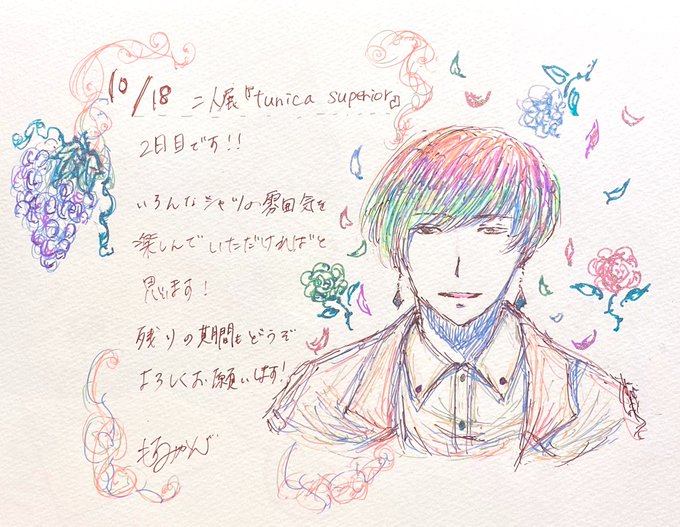 10/18 二人展『tunica superior』
2日目です!!
いろんなシャツの雰囲気を
楽しんでいただければと
思います!
残りの期間もどうぞ
よろしくお願いします!